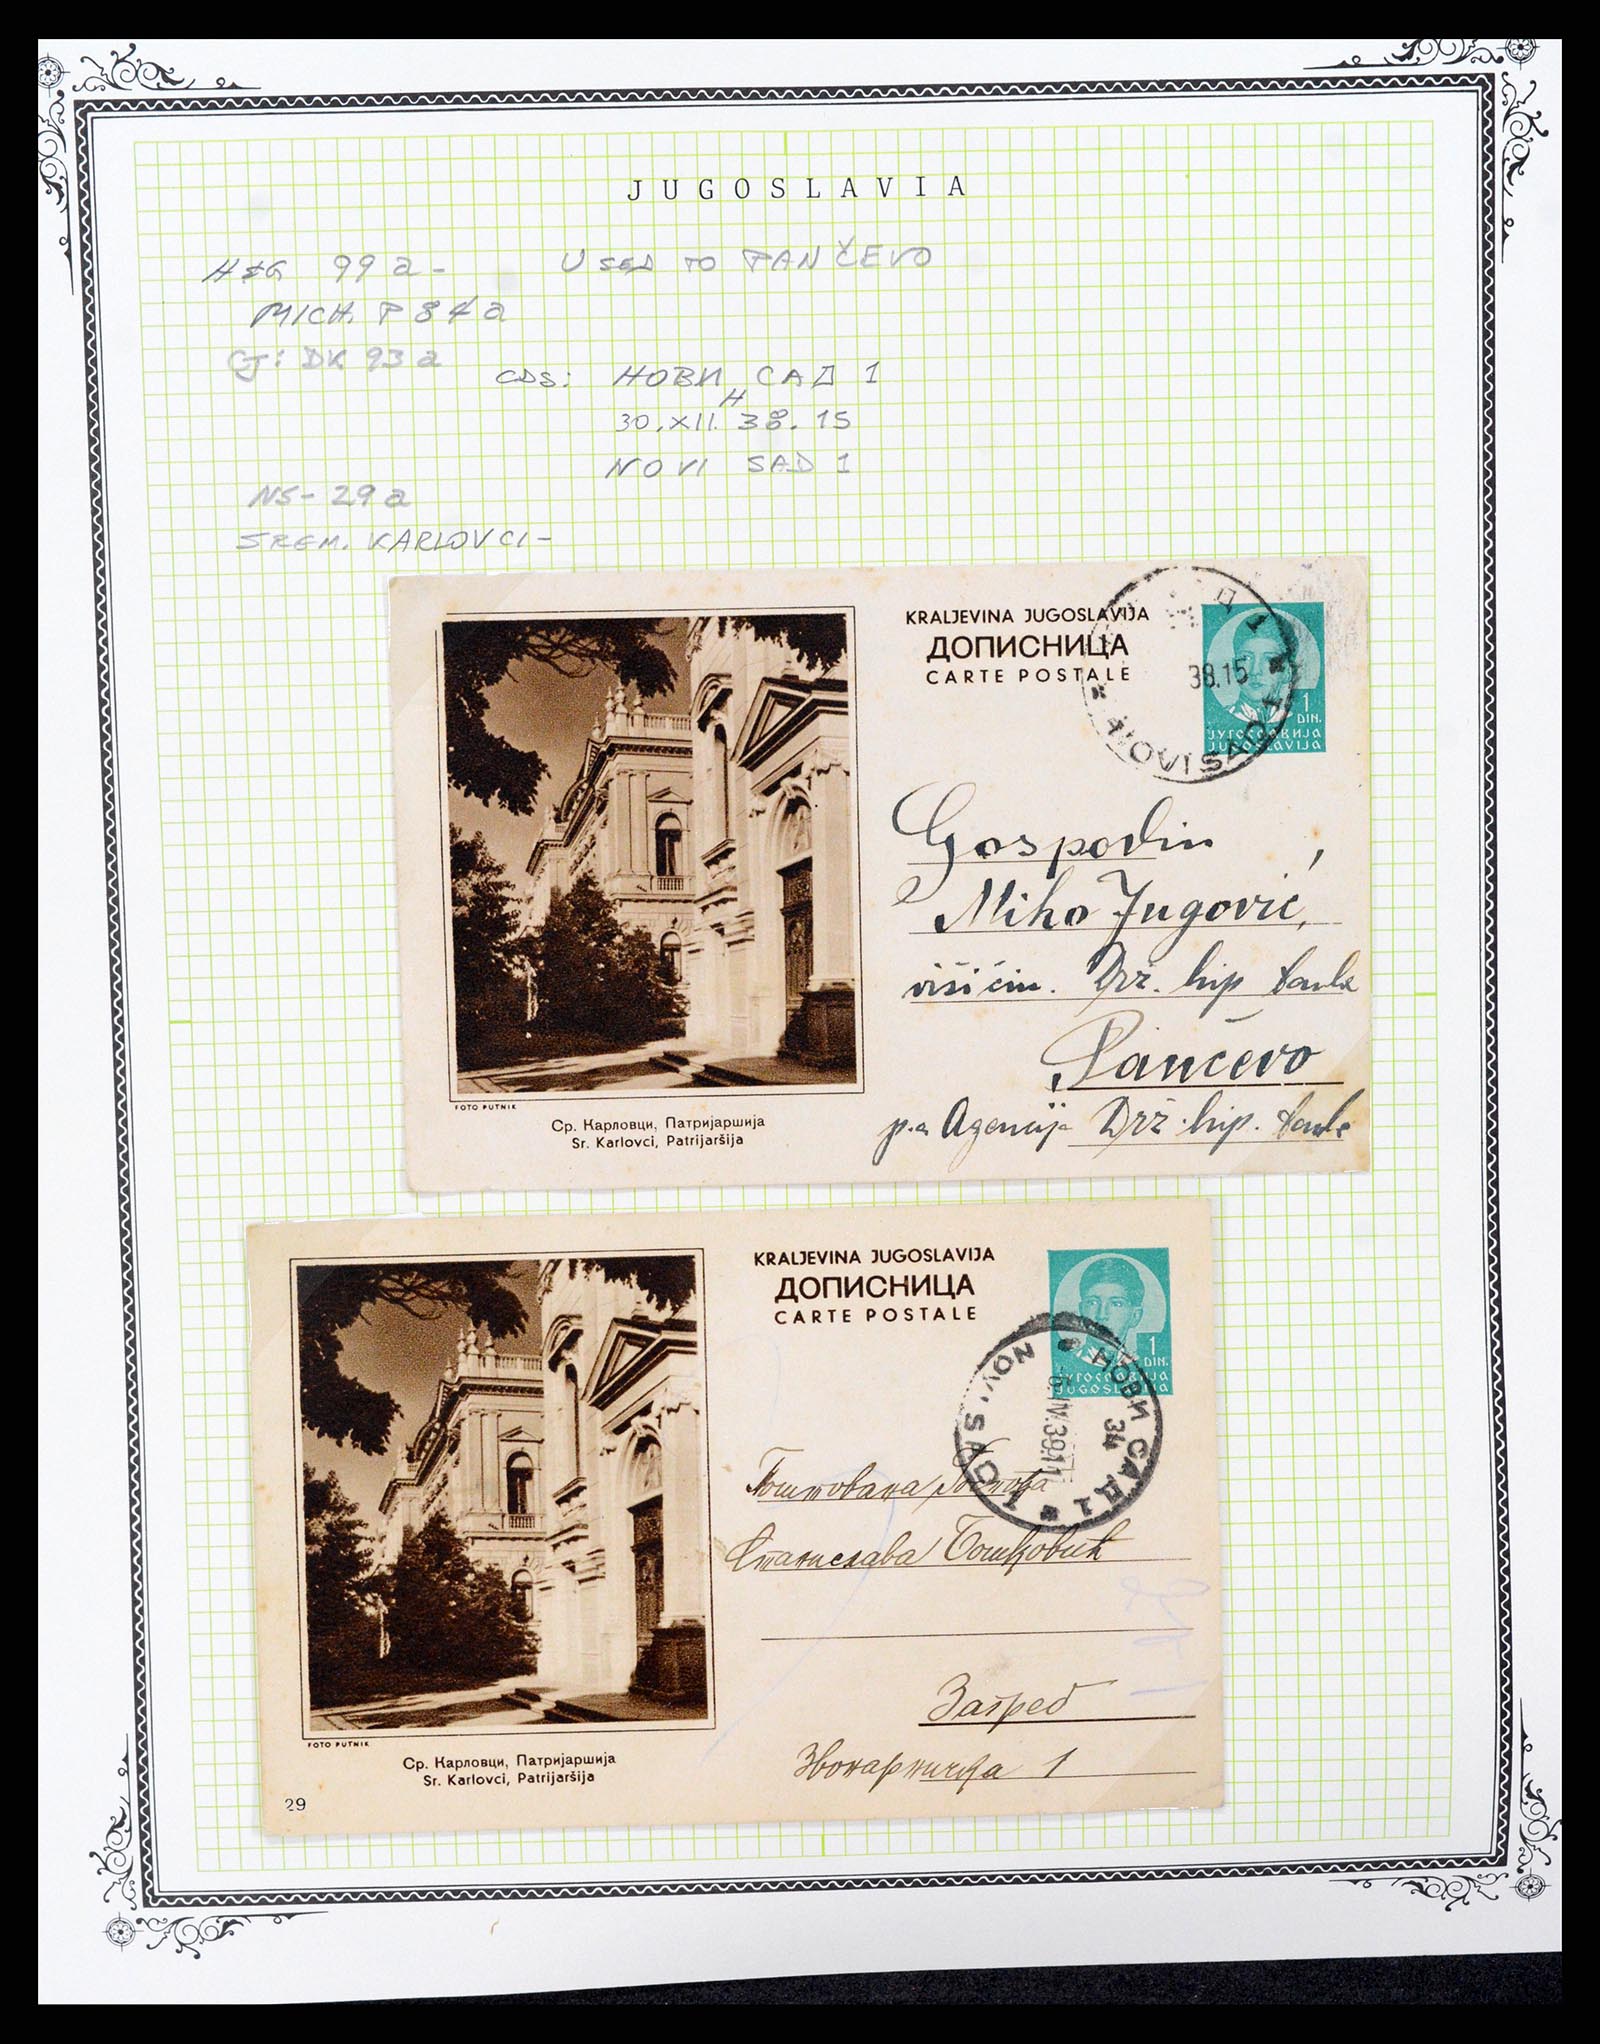 JUGOSLAVIA
H&G 99a-
USED TO PANČEVO
MICH. P 84a
CJ: DK 93a
CDS: НОВИ САД 1
H
30.XII.38.15
NOVI SAD 1
NS-29a
SREM. KARLOVCI-
KRALJEVINA JUGOSLAVIJA
ДОПИСНИЦА
CARTE POSTALE
Д 1
38.15
NOVI SAD 1
1
DIN.
ЈУГОСЛАВИЈА
JUGOSLAVIJA
Gospodin
Miho Jugović,
Drž. hip banke
Pančevo
p.a. Agencija Drž. hip. banke
FOTO PUTNIK
Ср. Карловци, Патријаршија
Sr. Karlovci, Patrijaršija
KRALJEVINA JUGOSLAVIJA
ДОПИСНИЦА
CARTE POSTALE
1
DIN.
ЈУГОСЛАВИЈА
JUGOSLAVIJA
НОВИ САД 1
34
-6.IV.39.11
NOVI SAD 1
Поштована Госпођа
Станислава Бошковић
Загреб
Звонарничка 1
FOTO PUTNIK
Ср. Карловци, Патријаршија
Sr. Karlovci, Patrijaršija
29